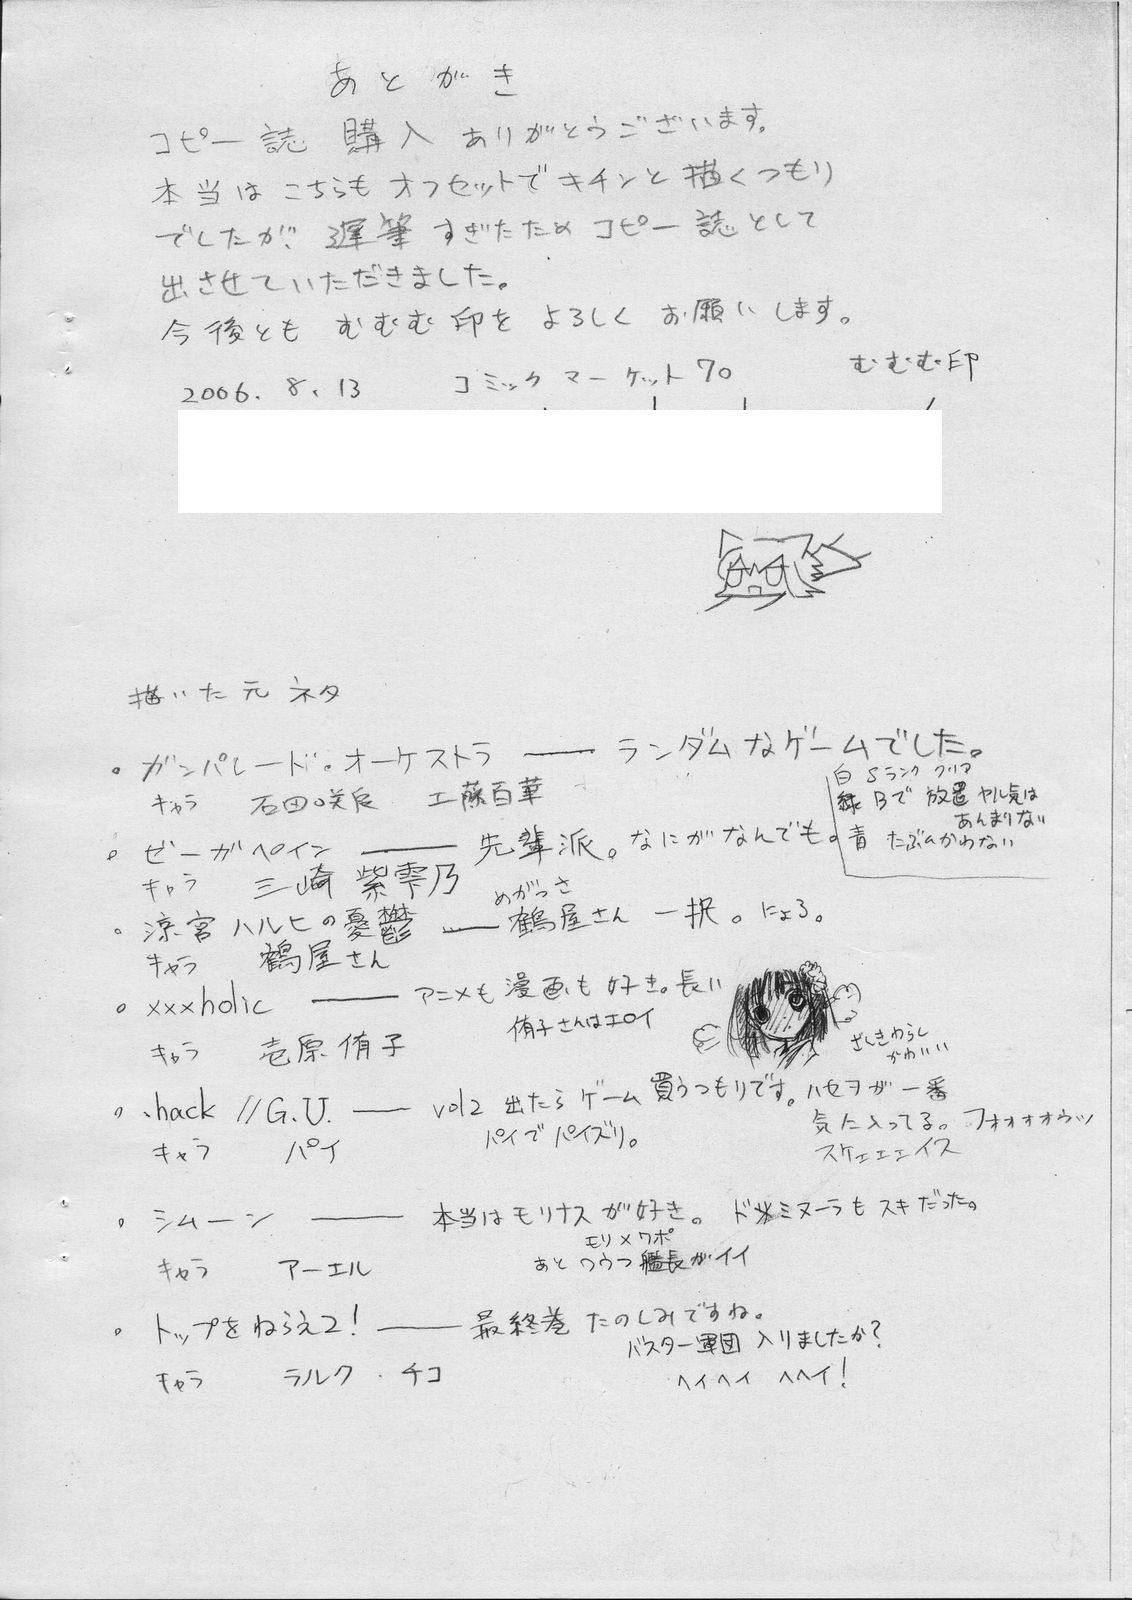 あとがき
コピー誌 購入 ありがとうございます。
本当は こちらも オフセットで キチンと 描くつもり
でしたが、遅筆 すぎたため コピー誌として
出させていただきました。
今後とも むむむ印を よろしく お願いします。
むむむ印
2006. 8. 13 コミックマーケット70
描いた元ネタ
・ガンパレード・オーケストラ ―― ランダムなゲームでした。
白 Sランク クリア
緑 Bで 放置 ヤル気は
あんまりない
青 たぶんかわない
キャラ 石田咲良 工藤百華
・ゼーガペイン ―― 先輩派。なにがなんでも。
キャラ 三崎 紫雫乃
めがっさ
・涼宮ハルヒの憂鬱 ―― 鶴屋さん 一択。にょろ。
キャラ 鶴屋さん
・xxxholic ―― アニメも 漫画も 好き。長い
侑子さんはエロイ
ざしきわらし
かわいい
キャラ 壱原 侑子
・.hack //G.U. ―― vol2 出たら ゲーム 買うつもりです。ハセヲが 一番
気に入ってる。 フォォォォウッ
スケェェェェイス
パイで パイズリ。
キャラ パイ
・シムーン ―― 本当はモリナスが好き。 ドミヌーラも スキだった。
モリ×ワポ
あと ワウフ 艦長がイイ
キャラ アーエル
・トップをねらえ2! ―― 最終巻 たのしみですね。
バスター軍団 入りましたか?
ヘイヘイ ヘヘイ!
キャラ ラルク・チコ